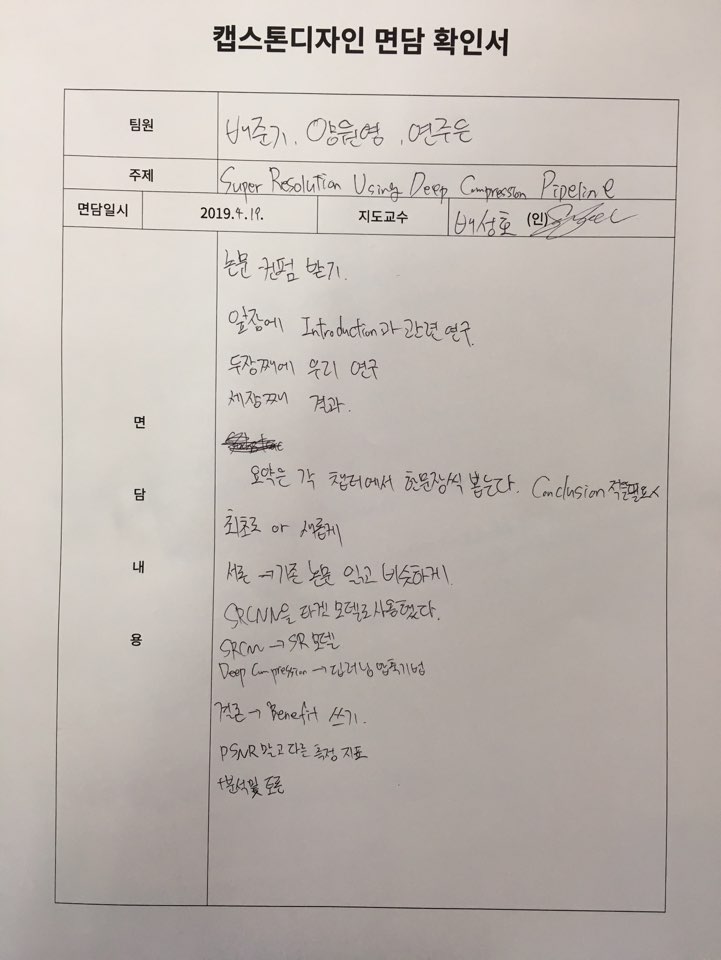 캡스톤디자인 면담 확인서
팀원 배준기, 양원영, 연주은
주제 Super Resolution Using Deep Compression Pipeline
면담일시 2019.4.19. 지도교수 배성호 (인)
면담내용
논문 컨펌 받기.
앞장에 Introduction과 관련 연구.
두장째에 우리 연구
세장째 결과.
요약은 각 챕터에서 한문장씩 뽑는다. Conclusion 적을필요x
최초로 or 새롭게
서론 → 기존 논문 읽고 비슷하게.
SRCNN을 타겟 모델로 사용했다.
SRCNN → SR 모델
Deep Compression → 딥러닝 압축기법
결론 → Benefit 쓰기.
PSNR 말고 다른 측정 지표
+분석 및 토론